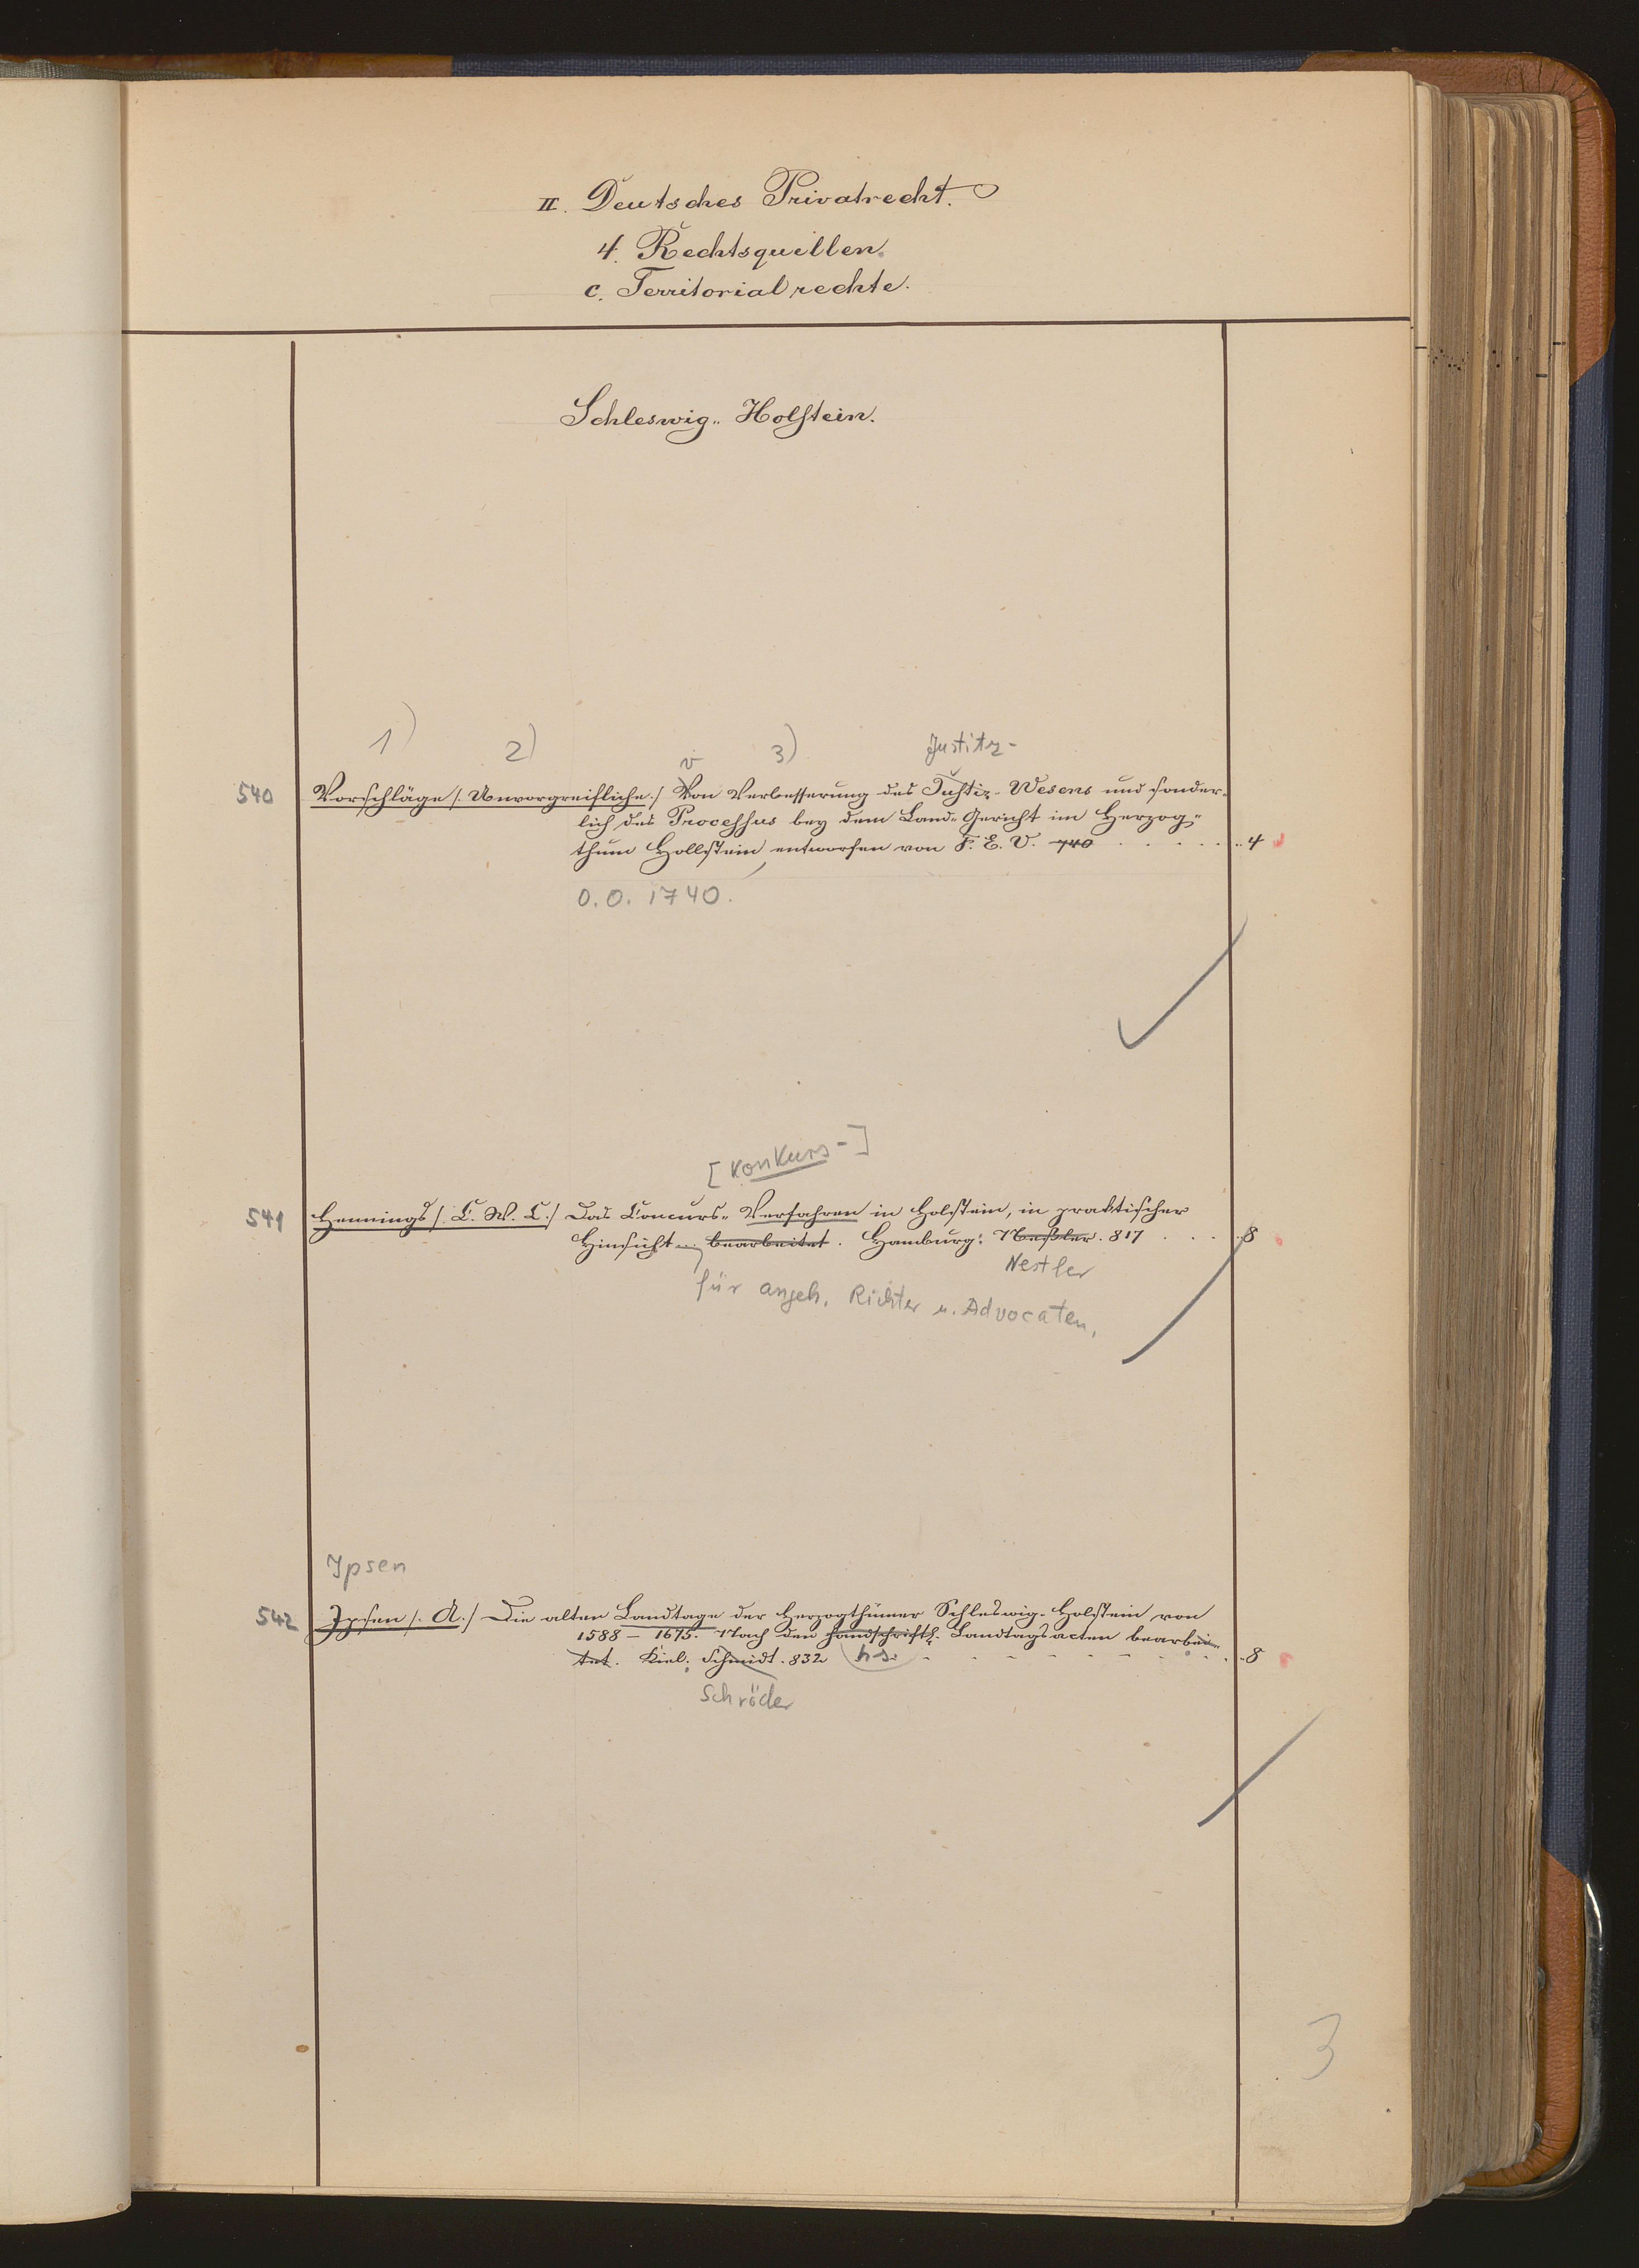 II. Deutsches Privatrecht.
4. Rechtsquellen.
c. Territorialrechte.
Schleswig-Holstein.
1) 2) v 3) Justitz-
540 Vorschläge /: Unvorgreifliche :/ Von Verbesserung des Justiz-Wesens und sonder-
lich des Processus bey dem Land-Gericht im Herzog-
thum Hollstein, entworfen von F. E. V. 740 . . . . . . . 4
O. O. 1740.
[Konkurs-]
541 Hennings /: C. W. C. :/ Das Concurs-Verfahren in Holstein, in praktischer
Hinsicht bearbeitet. Hamburg: Neßler. 817 . . . . 8
Nestler
für angeh. Richter u. Advocaten,
Ipsen
542 Ipsen /: A. :/ Die alten Landtage der Herzogthümer Schleswig-Holstein von
1588 – 1675. Nach den handschriftl. Landtagsacten bearbei-
tet. Kiel: Schmidt. 832 hs. . . . . . . . . 8
Schröder
3